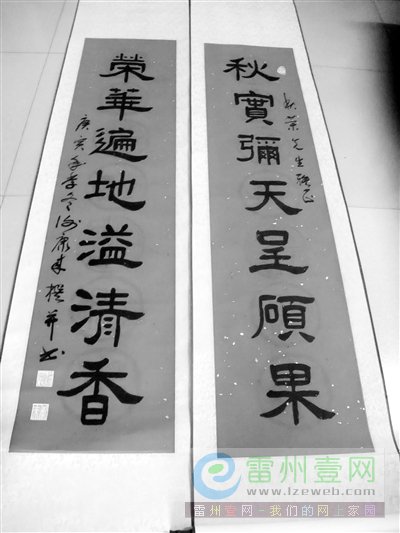 秋實彌天呈碩果
秋榮先生正
榮華遍地溢清香
庚寅年季冬海康撰并书
雷州壹网
www.lzeweb.com
雷州壹网-我们的网上家园